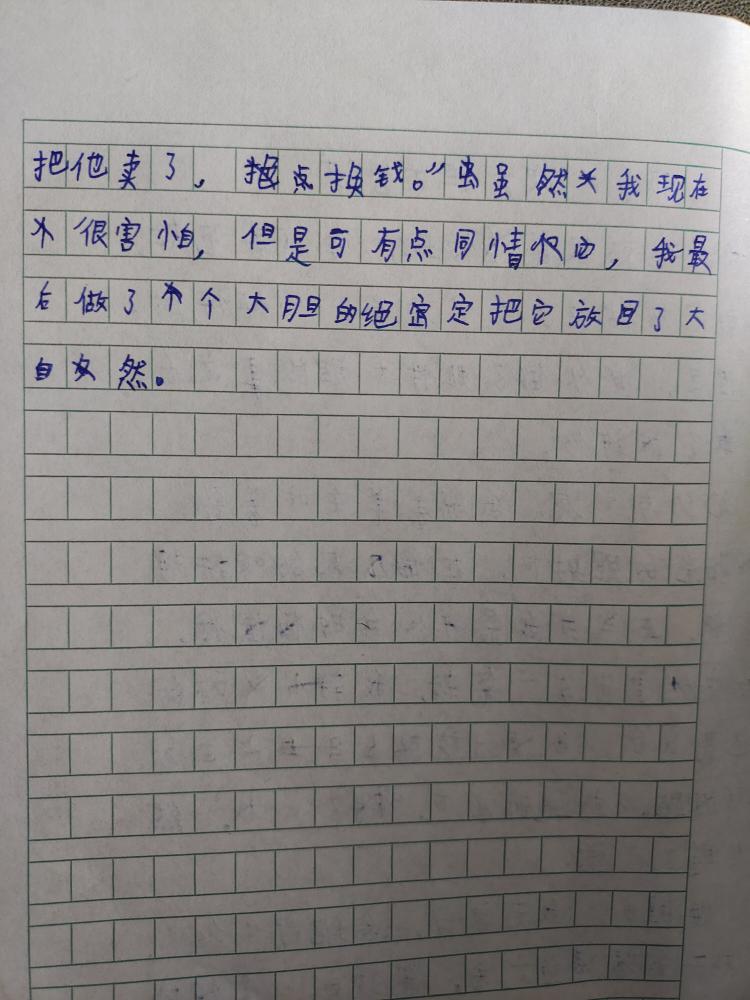 把他卖了，换点换钱。”虽虽然我现在
很害怕，但是可有点同情它，我最
后做了个大胆的绝定把它放回了大
自然。